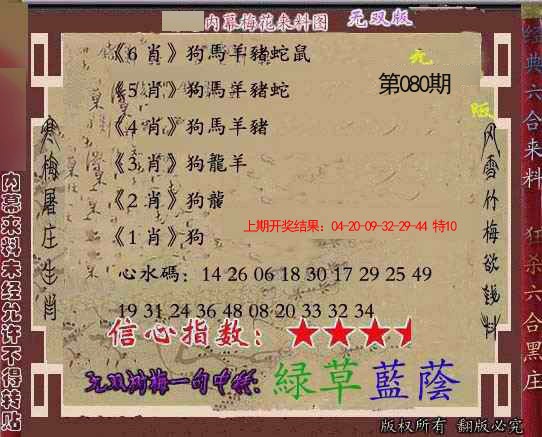 内幕梅花来料图 无双版
《6 肖》狗馬羊豬蛇鼠
《5 肖》狗馬羊豬蛇
《4 肖》狗馬羊豬
《3 肖》狗龍羊
《2 肖》狗龍
《1 肖》狗
第080期
上期开奖结果：04-20-09-32-29-44 特10
心水碼：14 26 06 18 30 17 29 25 49
19 31 24 36 48 08 20 33 32 34
信心指数：
无双 梅一句中特：綠草藍蔭
版权所有 翻版必究
内幕来料未经允许不得转贴
寒梅屠庄生肖
风雪竹梅欲钱料
经典六合来料
狂杀六合黑庄